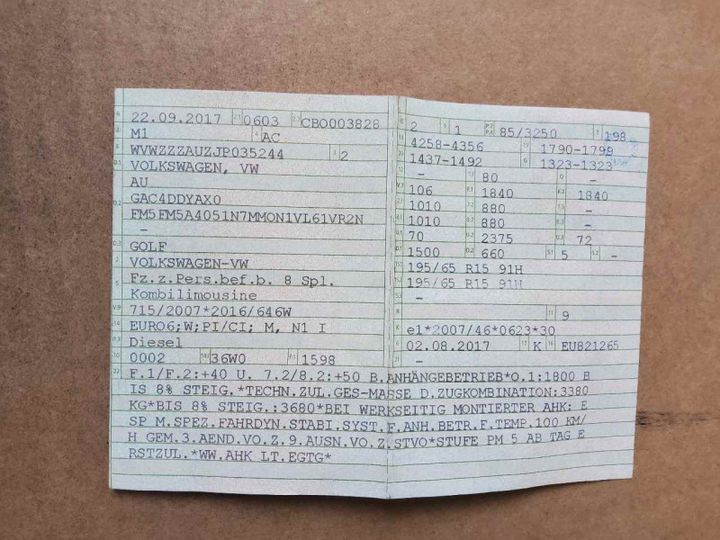 22.09.2017 0603 CBO003828
M1 AC
WVWZZZAUZJP035244 2
VOLKSWAGEN, VW
AU
GAC4DDYAX0
FM5FM5A4051N7MMON1VL61VR2N
-
GOLF
VOLKSWAGEN-VW
Fz.z.Pers.bef.b. 8 Spl.
Kombilimousine
715/2007*2016/646W
EURO6;W;PI/CI; M, N1 I
Diesel
0002 36W0 1598
2 1 85/3250 198
4258-4356 1790-1799
1437-1492 1323-1323
- 80 -
106 1840 1840
1010 880 -
1010 880 -
70 2375 72
1500 660 5 -
195/65 R15 91H
195/65 R15 91H
-
9
e1*2007/46*0623*30
02.08.2017 K EU821265
-
F.1/F.2:+40 U. 7.2/8.2:+50 B.ANHÄNGEBETRIEB*O.1:1800 B
IS 8% STEIG.*TECHN.ZUL.GES-MASSE D.ZUGKOMBINATION:3380
KG*BIS 8% STEIG.:3680*BEI WERKSEITIG MONTIERTER AHK: E
SP M.SPEZ.FAHRDYN.STABI.SYST.F.ANH.BETR.F.TEMP.100 KM/
H GEM.3.AEND.VO.Z.9.AUSN.VO.Z.STVO*STUFE PM 5 AB TAG E
RSTZUL.*WW.AHK LT.EGTG*